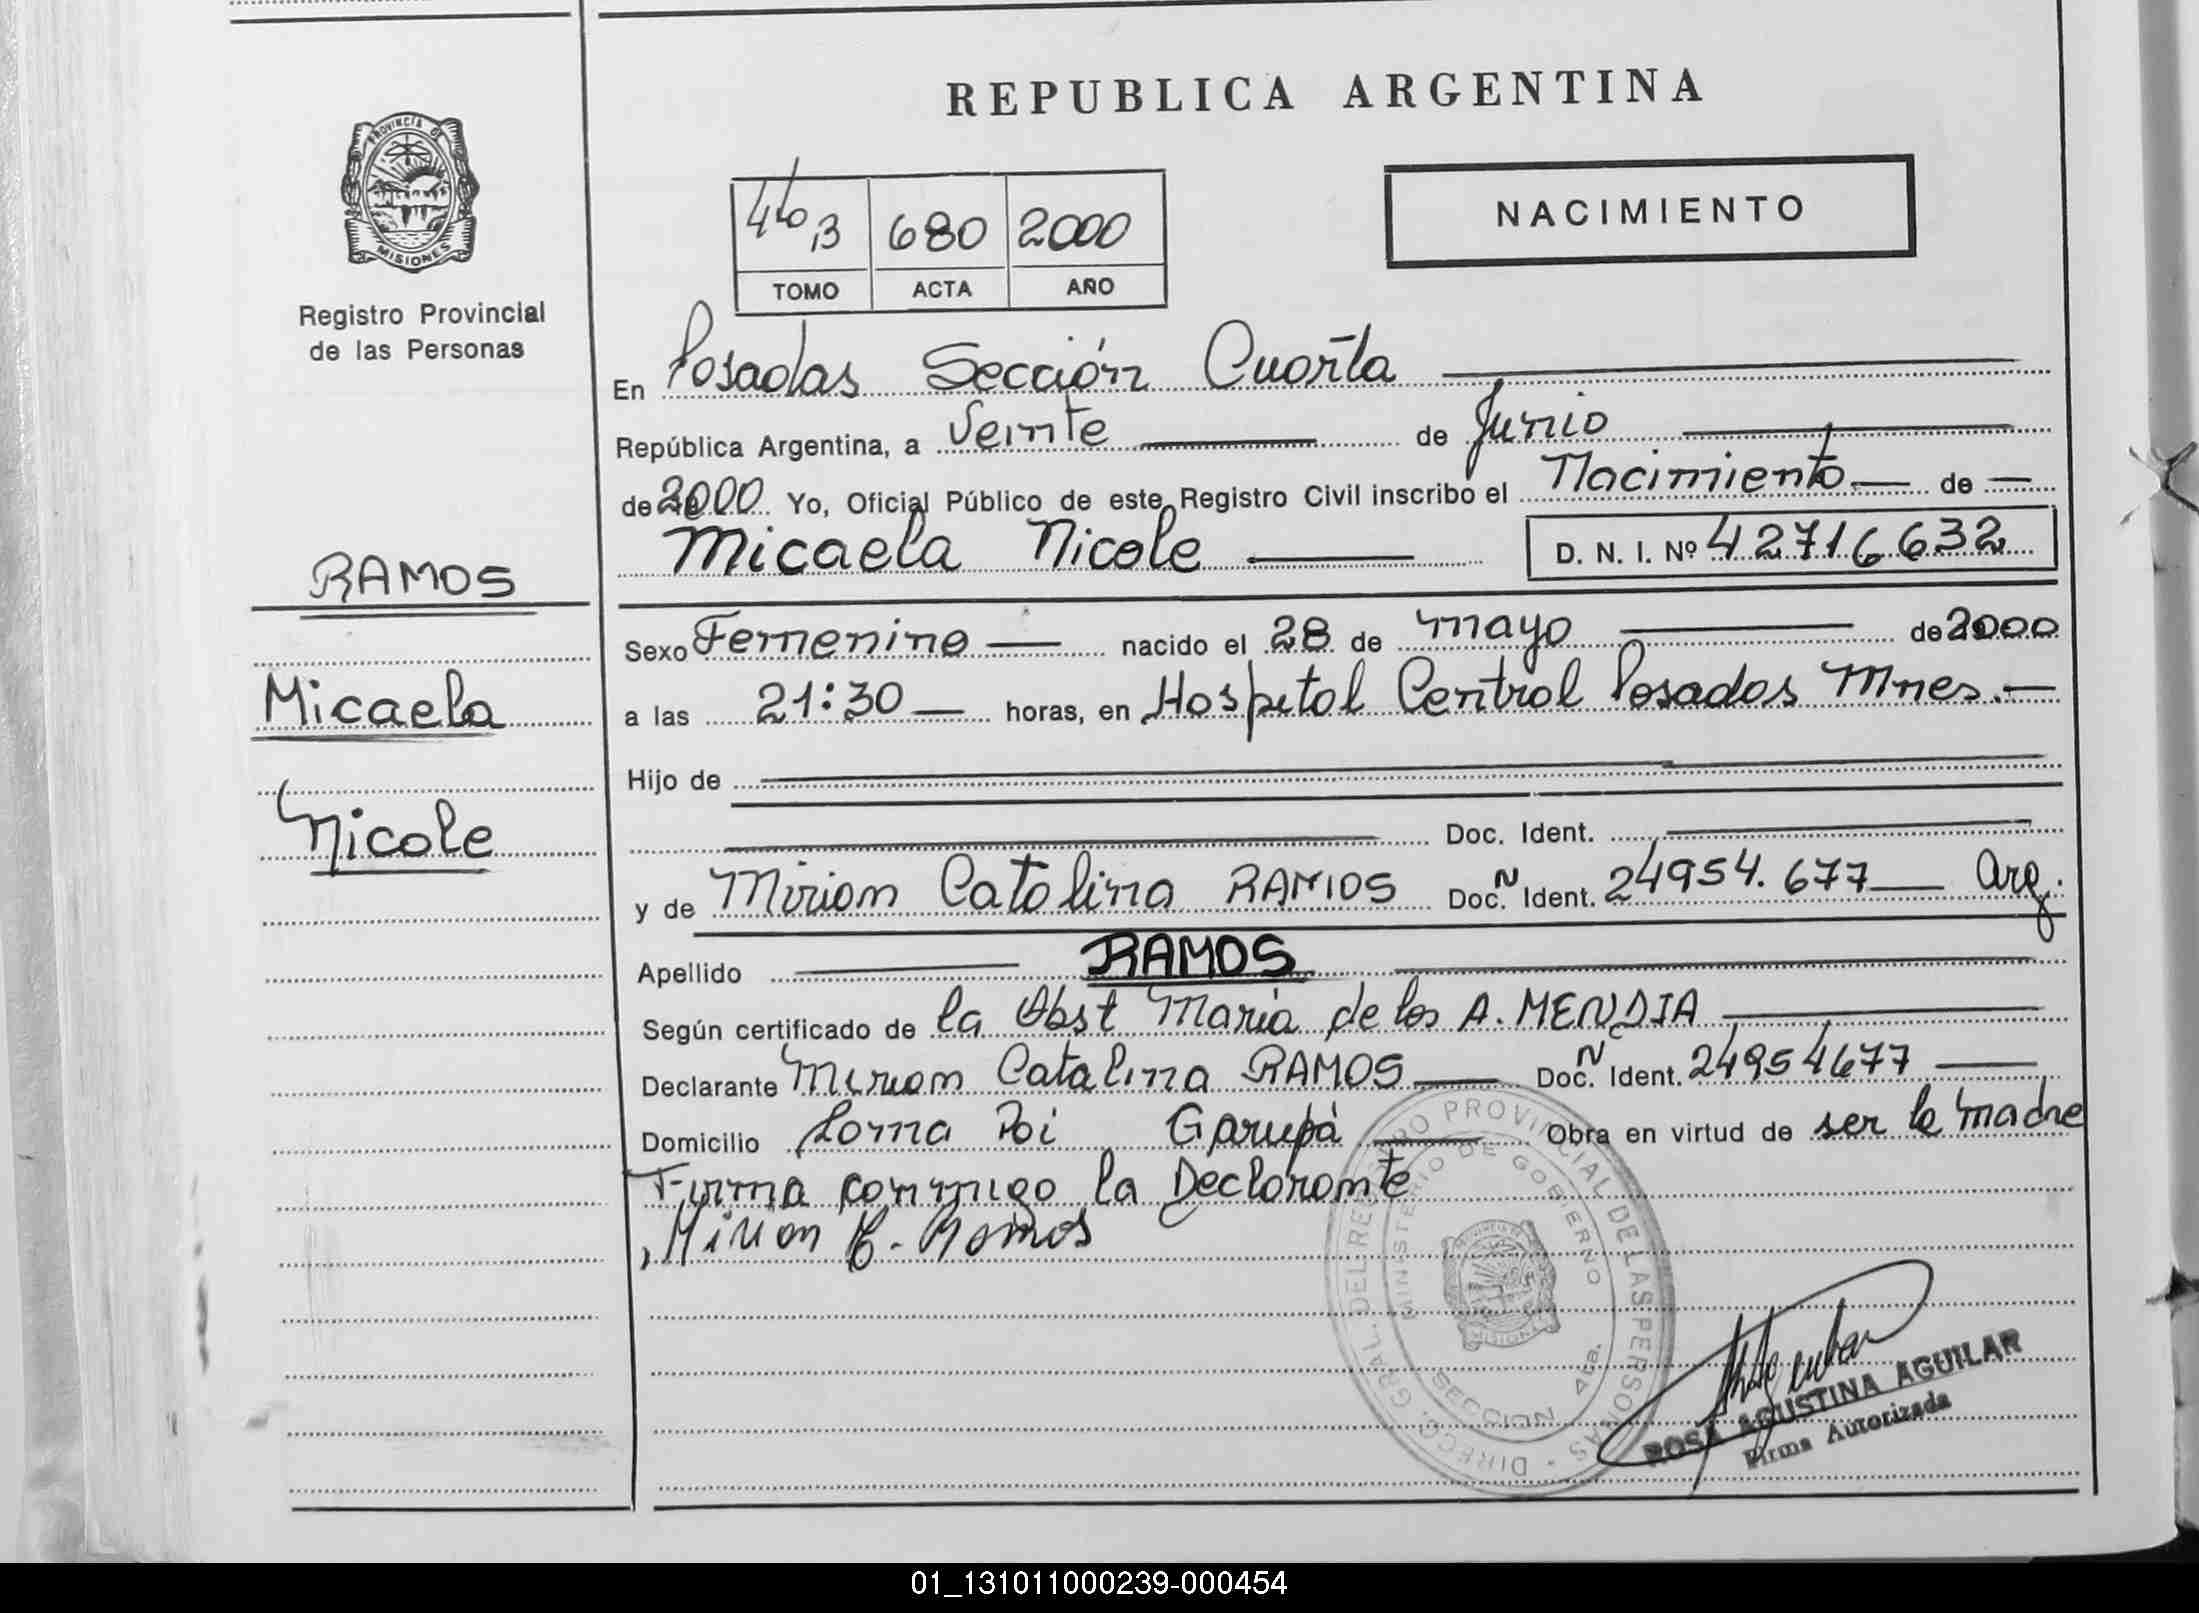 REPUBLICA ARGENTINA
PROVINCIA DE MISIONES
Registro Provincial
de las Personas
680 2000
TOMO ACTA AÑO
NACIMIENTO
En Posadas Sección Cuarta
República Argentina, a Veinte de Junio
de 2000 Yo, Oficial Público de este Registro Civil inscribo el Nacimiento de
Micaela Nicole D. N. I. Nº 42716632
RAMOS
Micaela
Nicole
Sexo Femenino nacido el 28 de mayo de 2000
a las 21:30 horas, en Hospital Central Posadas Mnes.
Hijo de
Doc. Ident.
y de Miriam Catalina RAMOS Doc. N Ident. 24954.677 Arg.
Apellido RAMOS
Según certificado de la Obst Maria de los A. MENDIA
Declarante Miriam Catalina RAMOS Doc. N Ident. 24954677
Domicilio Loma Poi Garupá Obra en virtud de ser la madre
Firma conmigo la Declarante
Mirian C. Ramos
DIRECC. GRAL. DEL REGISTRO PROVINCIAL DE LAS PERSONAS
MINISTERIO DE GOBIERNO
SECCION 4ta.
ROSA AGUSTINA AGUILAR
Firma Autorizada
01_131011000239-000454